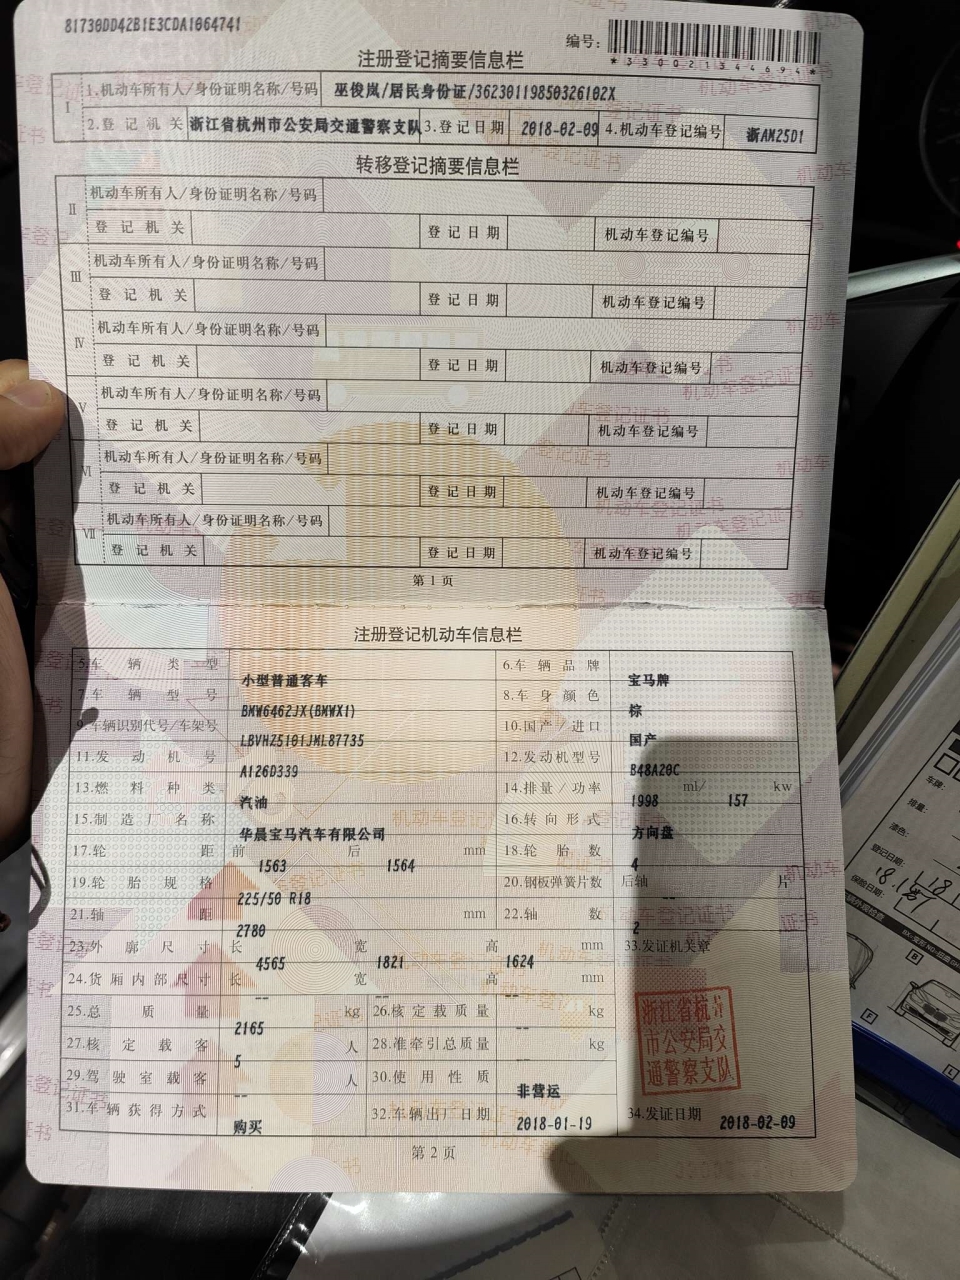 81730DD42B1E3CDA1064741
编号:
*330021544694*
注册登记摘要信息栏
I 1.机动车所有人/身份证明名称/号码 巫俊岚/居民身份证/36230119850326102X
2.登记机关 浙江省杭州市公安局交通警察支队 3.登记日期 2018-02-09 4.机动车登记编号 浙AM25D1
转移登记摘要信息栏
II 机动车所有人/身份证明名称/号码
登记机关 登记日期 机动车登记编号
III 机动车所有人/身份证明名称/号码
登记机关 登记日期 机动车登记编号
IV 机动车所有人/身份证明名称/号码
登记机关 登记日期 机动车登记编号
V 机动车所有人/身份证明名称/号码
登记机关 登记日期 机动车登记编号
VI 机动车所有人/身份证明名称/号码
登记机关 登记日期 机动车登记编号
VII 机动车所有人/身份证明名称/号码
登记机关 登记日期 机动车登记编号
第1页
注册登记机动车信息栏
5.车辆类型 小型普通客车 6.车辆品牌 宝马牌
7.车辆型号 BMW6462JX(BMWX1) 8.车身颜色 棕
9.车辆识别代号/车架号 LBVHZ5101JML87735 10.国产/进口 国产
11.发动机号 A126D339 12.发动机型号 B48A20C
13.燃料种类 汽油 14.排量/功率 1998 ml/ 157 kw
15.制造厂名称 华晨宝马汽车有限公司 16.转向形式 方向盘
17.轮距 前 1563 后 1564 mm 18.轮胎数 4
19.轮胎规格 225/50 R18 20.钢板弹簧片数 后轴 -- 片
21.轴距 2780 mm 22.轴数 2
23.外廓尺寸 长 4565 宽 1821 高 1624 mm 33.发证机关章
24.货厢内部尺寸 长 -- 宽 -- 高 -- mm
25.总质量 2165 kg 26.核定载质量 -- kg
27.核定载客 5 人 28.准牵引总质量 -- kg
29.驾驶室载客 -- 人 30.使用性质 非营运
31.车辆获得方式 购买 32.车辆出厂日期 2018-01-19 34.发证日期 2018-02-09
浙江省杭州
市公安局交
通警察支队
第2页
车牌:
排量:
颜色:
登记日期:
保险日期:
B
F